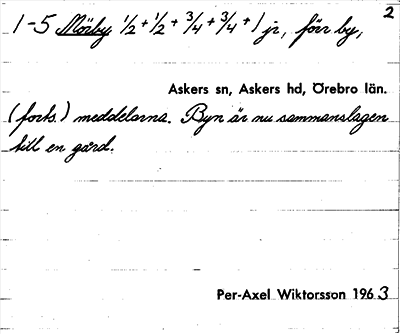 2
1-5 Mörby 1/2 + 1/2 + 3/4 + 3/4 + 1 jr, förr by,
Askers sn, Askers hd, Örebro län.
(forts.) meddelarna. Byn är nu sammanslagen
till en gård.
Per-Axel Wiktorsson 1963